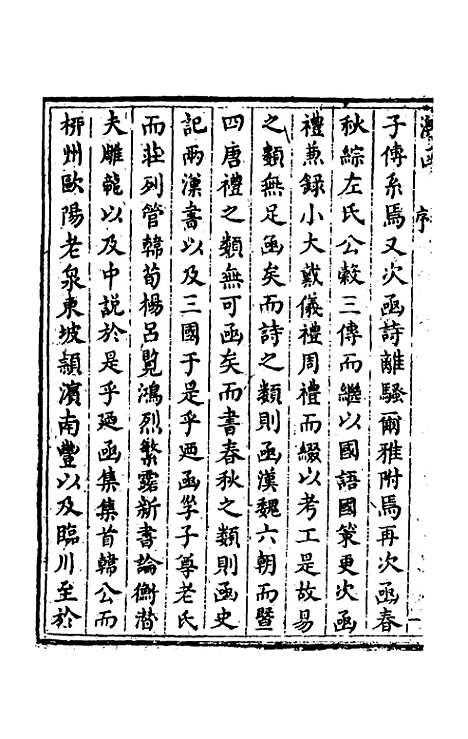 序
子傳系焉又次函詩離騷爾雅附焉再次函春
秋綜左氏公穀三傳而繼以國語國策更次函
禮兼録小大戴儀禮周禮而綴以考工是故易
之類無足函矣而詩之類則函漢魏六朝而暨
四唐禮之類無可函矣而書春秋之類則函史
記兩漢書以及三國于是乎廼函孚子尊老氏
而莊列管韓荀楊呂覧鴻烈繁露新書論衡潛
夫雕龍以及中說於是乎廼函集集首韓公而
栁州歐陽老泉東坡頴濱南豐以及臨川至於